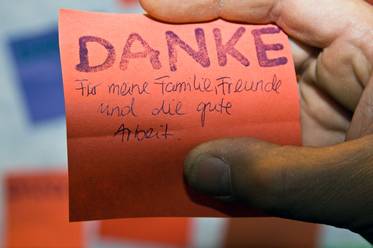 DANKE
Für meine Familie, Freunde
und die gute
Arbeit.